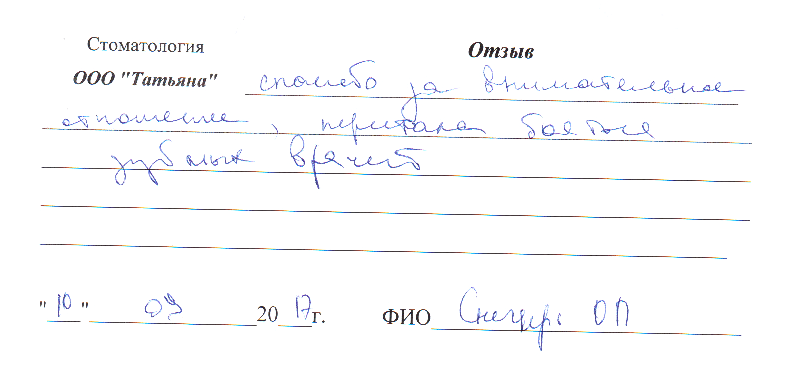 Стоматология
Отзыв
ООО "Татьяна" спасибо за внимательное
отношение, перестала бояться
зубных врачей
"10" 03 2017г. ФИО ОП